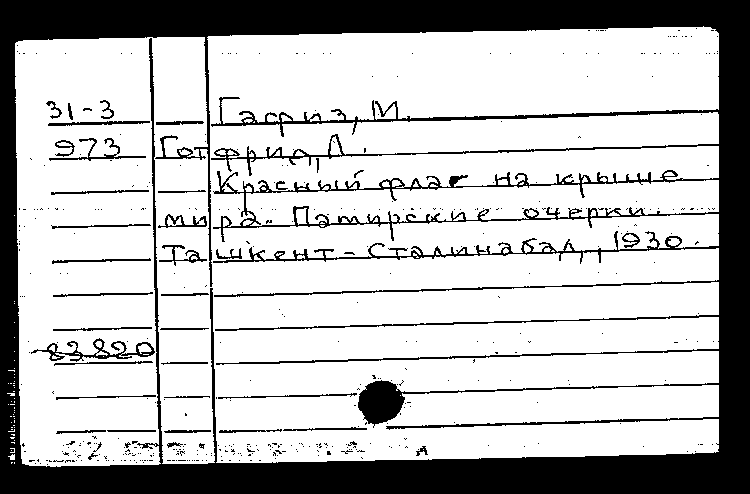 31-3 Гафиз, М.
973 Готфрид, Л.
Красный флаг на крыше
мира. Памирские очерки.
Ташкент-Сталинабад, 1930.
83820